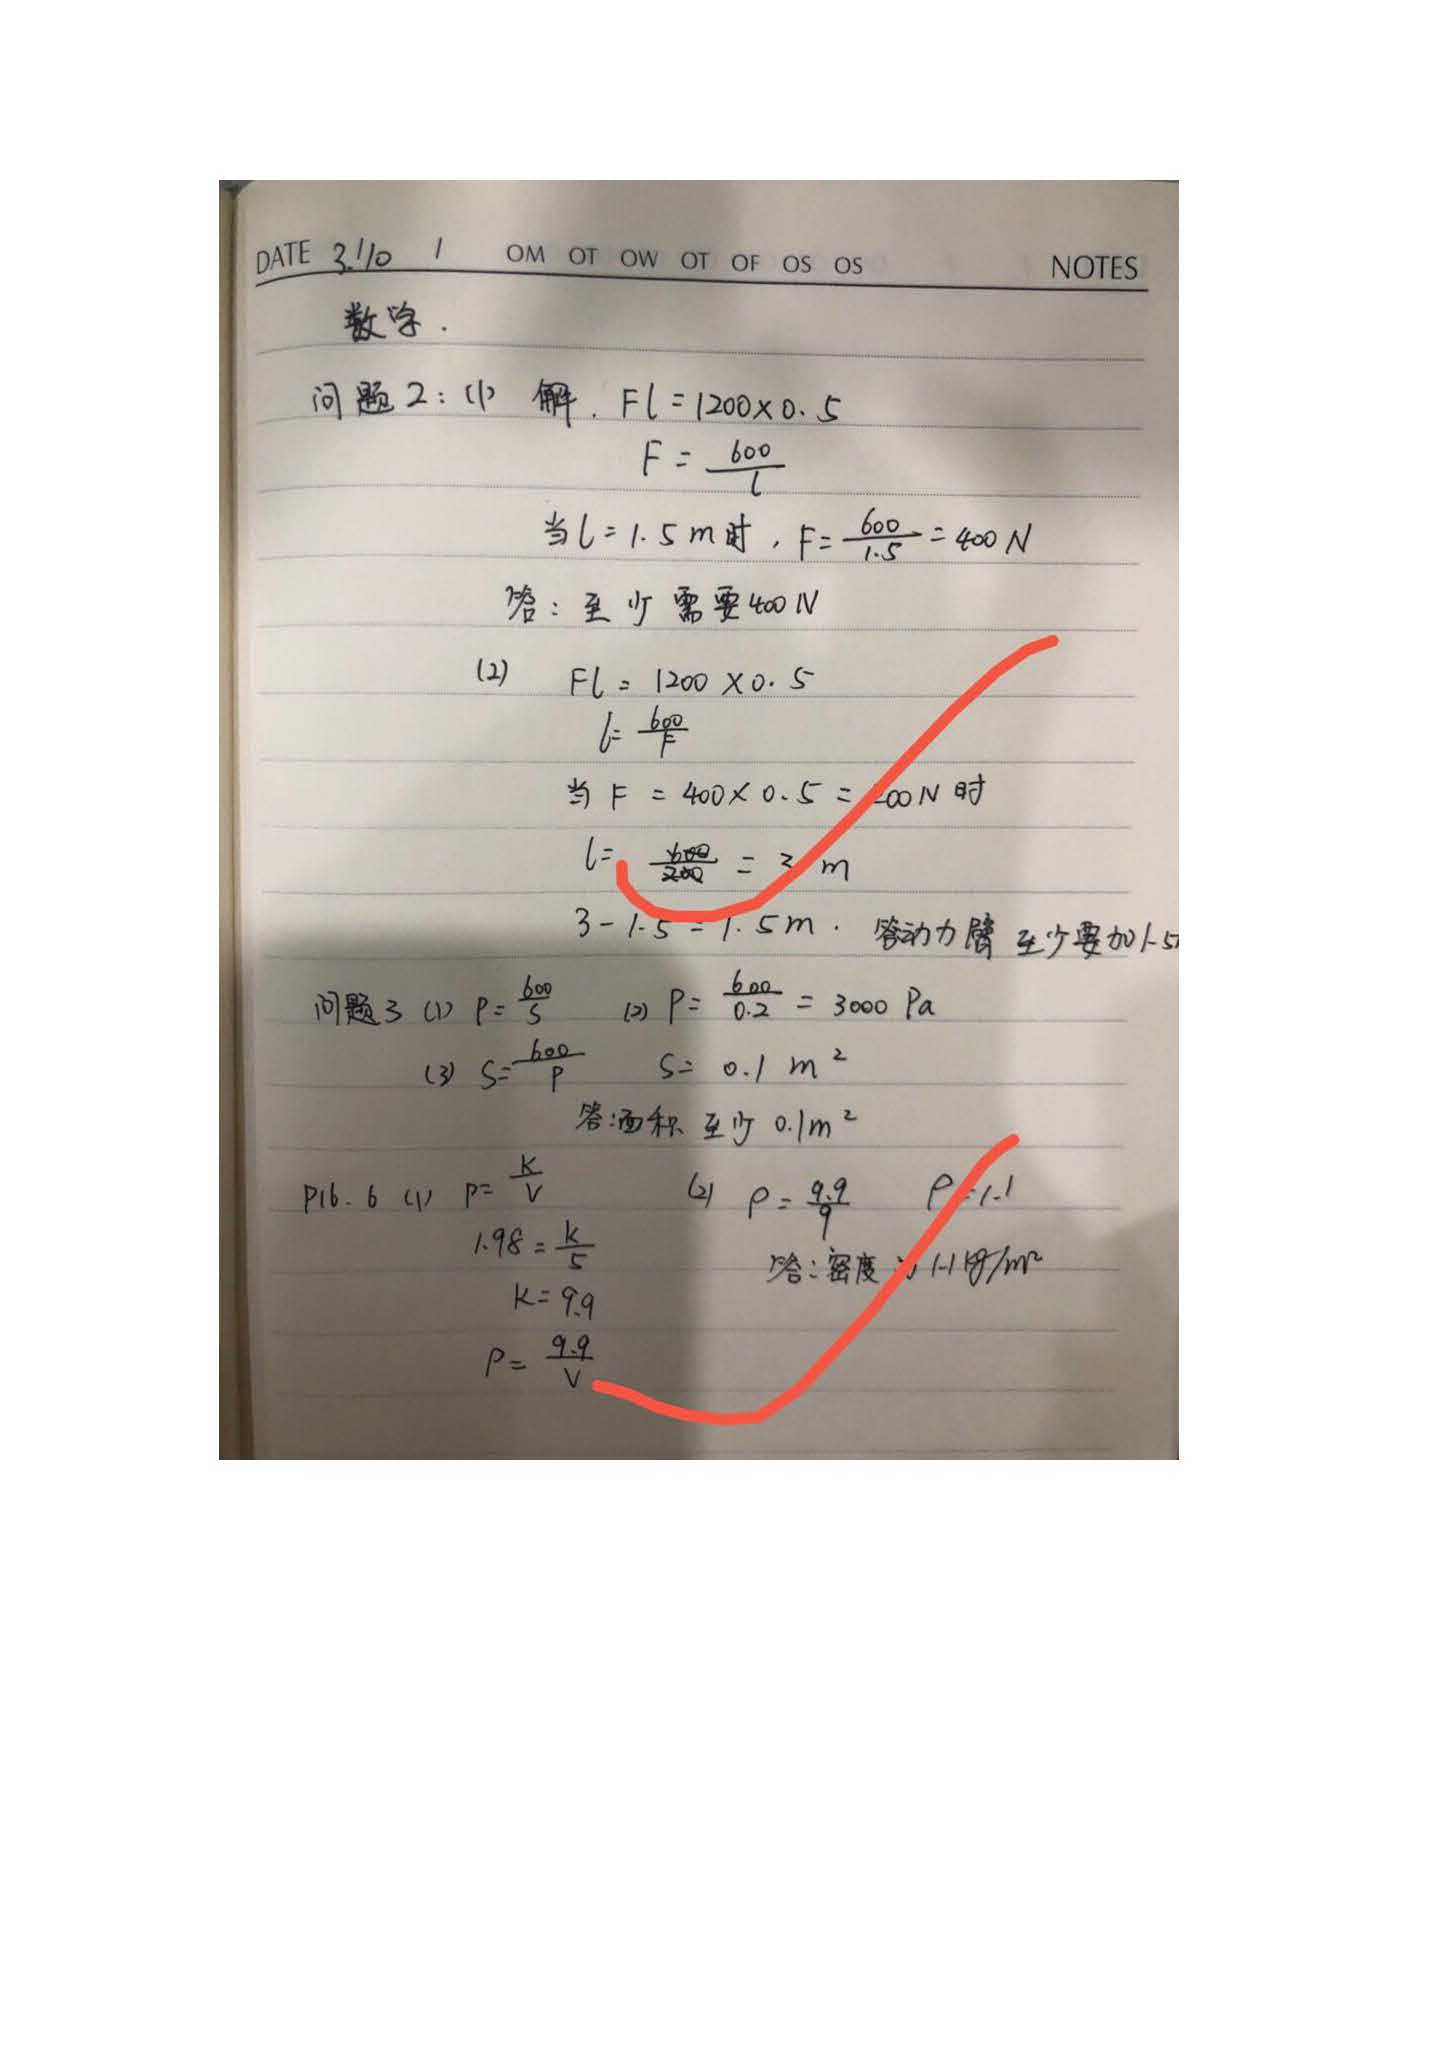 DATE 3.10 1 OM OT OW OT OF OS OS NOTES
数学.
问题2:(1) 解. Fl=1200×0.5
F=600/l
当l=1.5m时,F=600/1.5=400N
答:至少需要400N
(2) Fl=1200×0.5
l=600/F
当F=400×0.5=200N时
l=600/200=3m
3-1.5=1.5m. 答动力臂至少要加1.5
问题3 (1) P=600/S (2) P=600/0.2=3000Pa
(3) S=600/P S=0.1m²
答:面积至少0.1m²
P16.6 (1) ρ=K/V (2) ρ=9.9/9 ρ=1.1
1.98=K/5 答:密度为1.1kg/m²
K=9.9
ρ=9.9/V